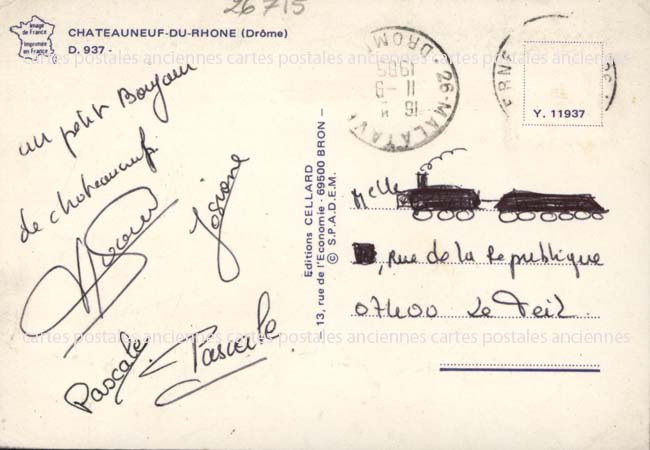 26715
Image de France
Imprimée en France
CHATEAUNEUF-DU-RHONE (Drôme)
D. 937 -
un petit Bonjour
de chateauneuf
Josiane
Pascale
Pascale
Editions CELLARD
- 13, rue de l'Economie - 69500 BRON -
© S.P.A.D.E.M.
26-MALATAV
DROM
15
11-9
1985
Y. 11937
Melle
, Rue de la Republique
07400 Le Teil
cartes postales anciennes cartes postales anciennes cartes postales anciennes
cartes postales anciennes cartes postales anciennes cartes postales anciennes